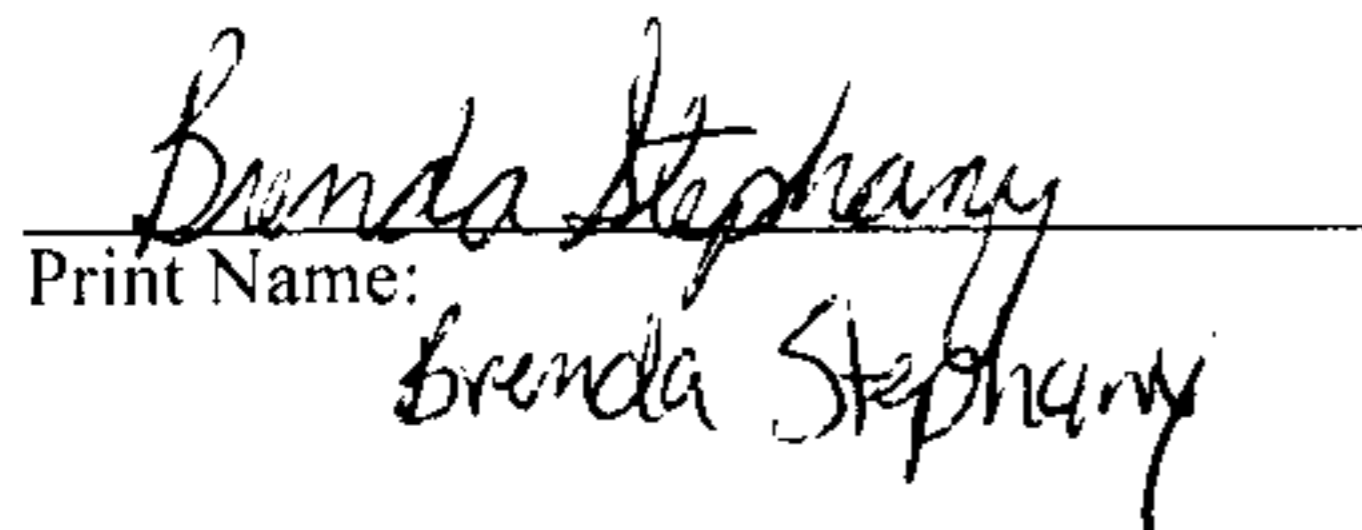 Brenda Stephany
Print Name:
Brenda Stephany